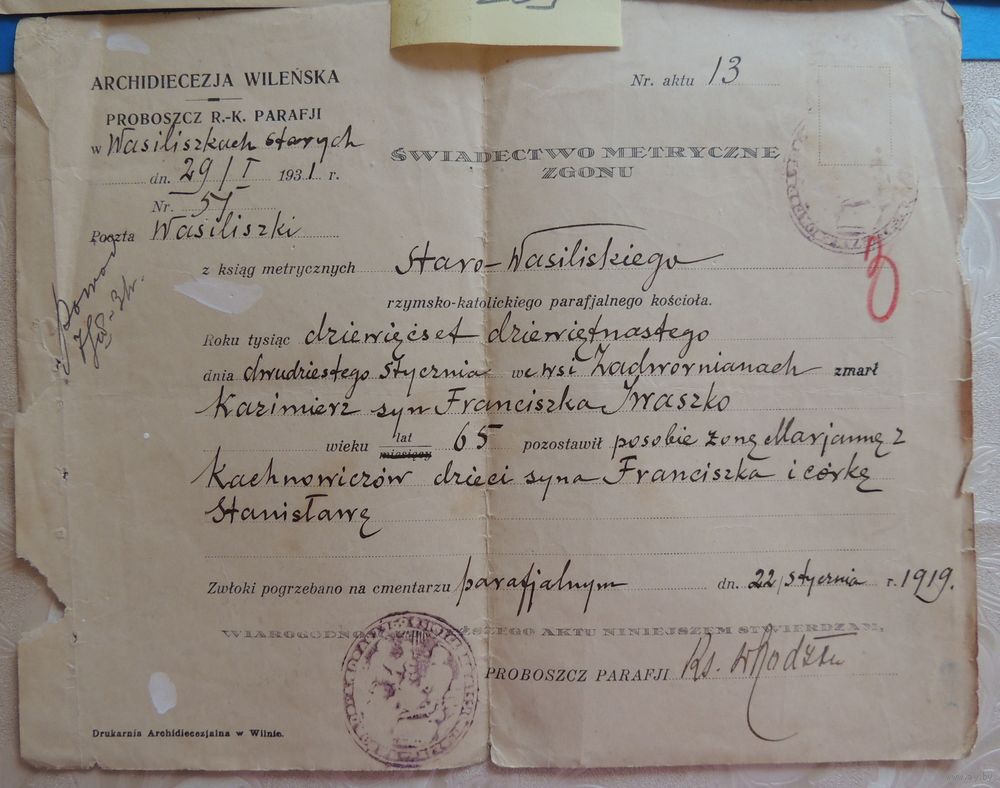 ARCHIDIECEZJA WILEŃSKA
PROBOSZCZ R.-K. PARAFJI
w Wasiliszkach starych
dn. 29/I 1931 r.
Nr. 51
Poczta Wasiliszki
Nr. aktu 13
ŚWIADECTWO METRYCZNE
ZGONU
z ksiąg metrycznych Staro-Wasiliskiego
rzymsko-katolickiego parafjalnego kościoła.
Roku tysiąc dziewięćset dziewiętnastego
dnia dwudziestego Stycznia we wsi Zadwornianach zmarł
Kazimierz syn Franciszka Iwaszko
wieku lat miesięcy 65 pozostawił po sobie żonę Marjannę z
Kachnowiczów dzieci syna Franciszka i córkę
Stanisławę
Zwłoki pogrzebano na cmentarzu parafjalnym dn. 22/stycznia r. 1919.
WIAROGODNO SZEGO AKTU NINIEJSZEM STWIERDZAM,
PROBOSZCZ PARAFJI Ks.
Drukarnia Archidiecezjalna w Wilnie.
www.ay.by